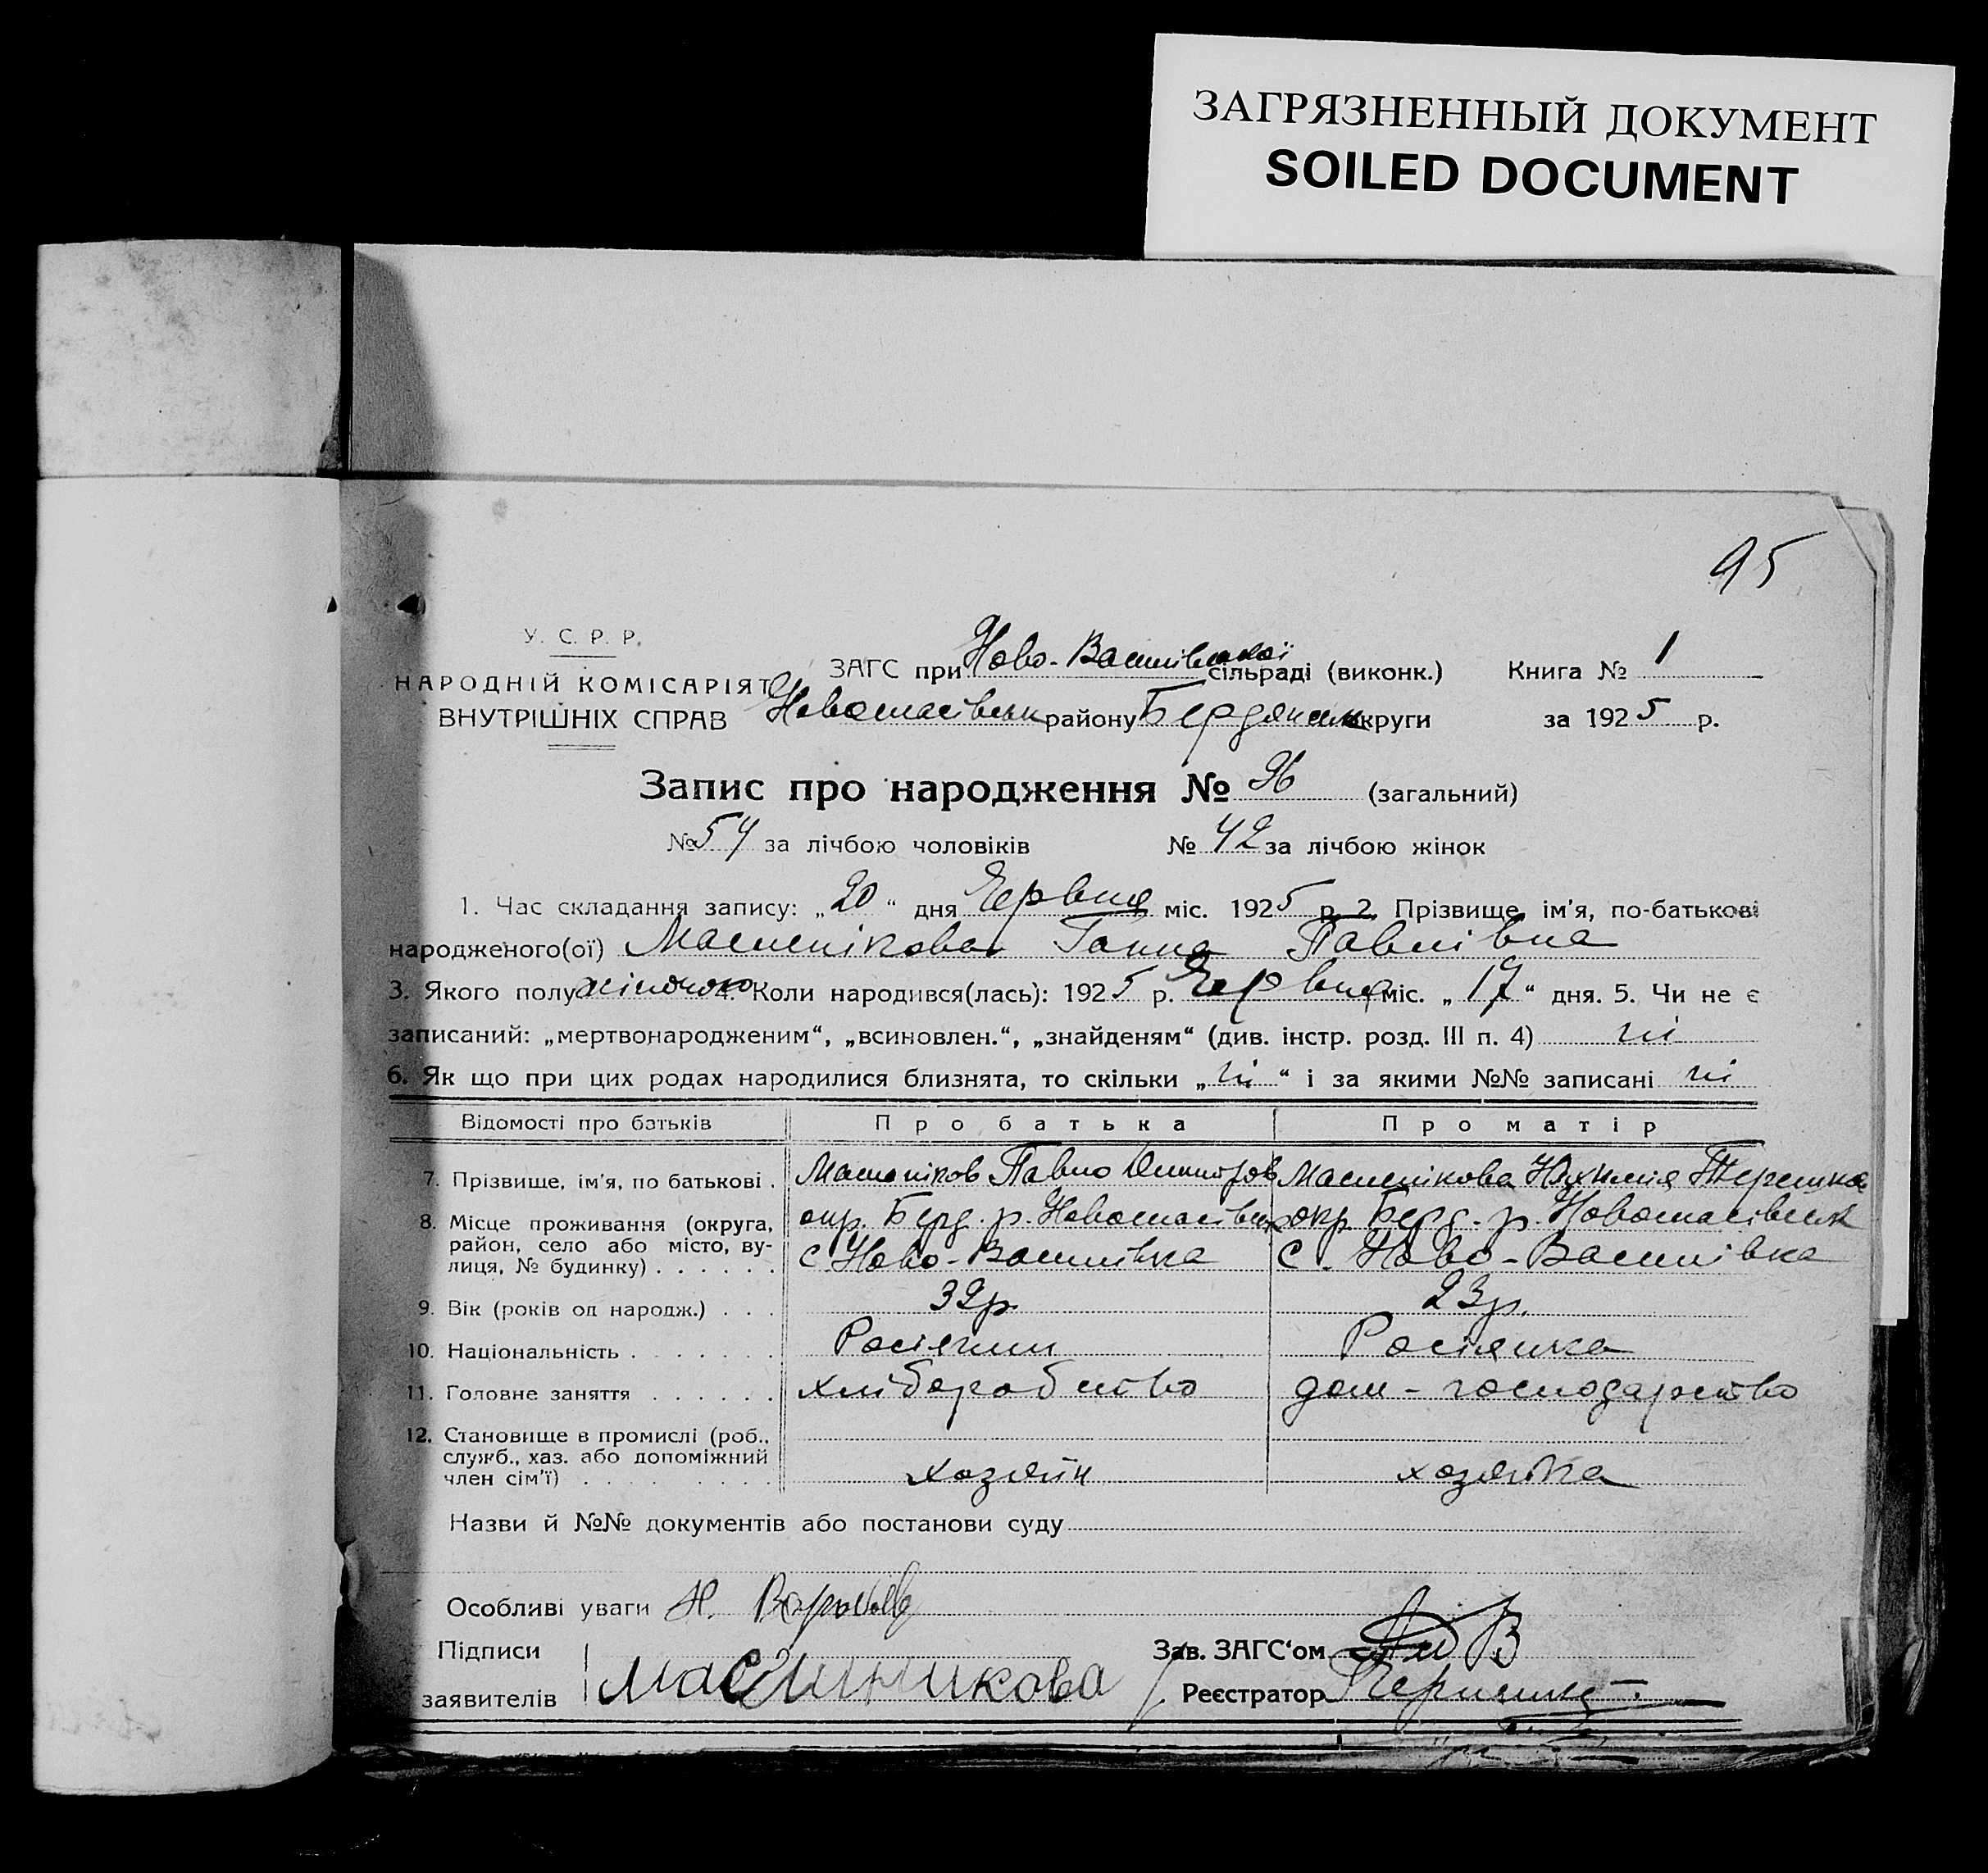 ЗАГРЯЗНЕННЫЙ ДОКУМЕНТ
SOILED DOCUMENT
95
У. С. Р. Р.
НАРОДНІЙ КОМІСАРІЯТ
ВНУТРІШНІХ СПРАВ
ЗАГС при Ново-Василівської сільраді (виконк.) Книга № 1
Новоспасівськ району Бердянськ округи за 1925 р.
Запис про народження № 96 (загальний)
№ 54 за лічбою чоловіків № 42 за лічбою жінок
1. Час складання запису: „20“ дня Червня міс. 1925 р. 2. Прізвище, ім'я, по-батькові
народженого(ої) Масленікова Ганна Павлівна
3. Якого полу жіночого 4. Коли народився(лась): 1925 р. Червня міс. „17“ дня. 5. Чи не є
записаний: „мертвонародженим“, „всиновлен.“, „знайденям“ (див. інстр. розд. III п. 4) ні
6. Як що при цих родах народилися близнята, то скільки „ні“ і за якими №№ записані ні
Відомості про батьків Про батька Про матір
7. Прізвище, ім'я, по батькові . Маслеников Павло Масленікова
8. Місце проживання (округа, окр. Берд. р. Новоспасівськ окр. Берд. р. Новоспасівськ
район, село або місто, ву- с. Ново-Василівка с. Ново-Василівка
лиця, № будинку) . . . . . .
9. Вік (років од народж.) . . . 32р. 23р.
10. Національність . . . . . . . Росіянин Росіянка
11. Головне заняття . . . . . . хліборобство дом-господарство
12. Становище в промислі (роб.,
служб., хаз. або допоміжний
член сім'ї) . . . . . . . . хозяїн хозяйка
Назви й №№ документів або постанови суду
Особливі уваги Н.
Підписи
заявителів Масленикова
Зав. ЗАГС'ом
Реєстратор